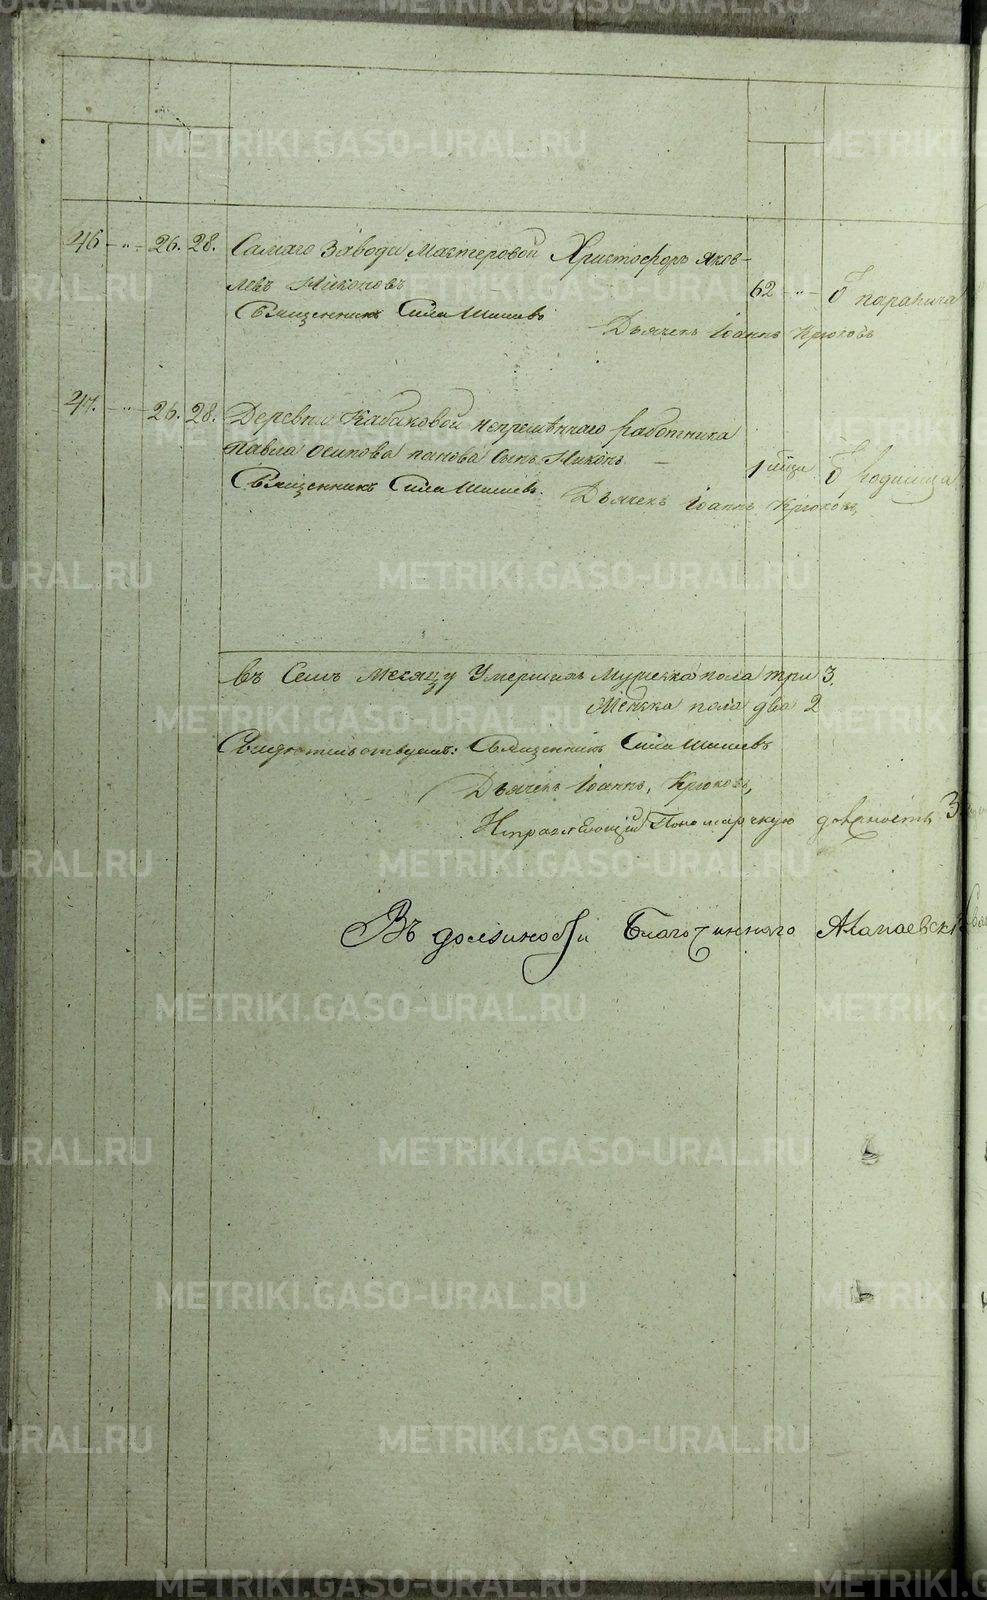 46 - " - 26. 28. Самаго Завода Мастеровой Христофоръ Яков-
левъ Никоновъ 62 - " - Ѿ паралича
Священникъ Сила Шишевъ
Дьячекъ Іоаннъ Крюковъ
47. - " - 26. 28. Деревни Кабаковой непремѣннаго работника
Павла Осипова Панова Сынъ Никонъ 1 мѣся. Ѿ родимца
Священникъ Сила Шишевъ. Дьячекъ Іоаннъ Крюковъ,
въ Семъ Месяцу Умершихъ Мужеска пола три 3.
Женска пола два 2
Свидетельствуемъ: Священникъ Сила Шишевъ
Дьячекъ Іоаннъ, Крюковъ,
Исправляющій Пономарскую должность З
Въ должности Благочиннаго Алапаевск
METRIKI.GASO-URAL.RU